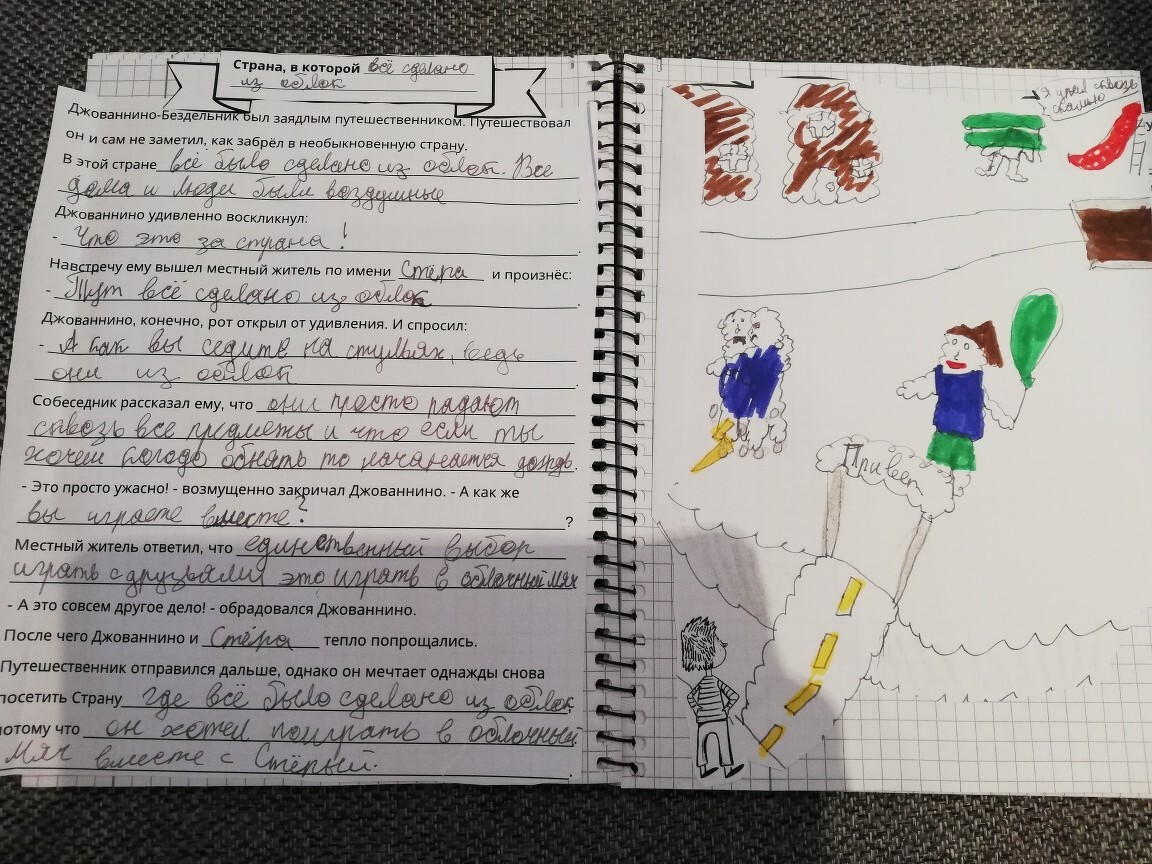 Страна, в которой всё сделано
из облок
Джованнино-Бездельник был заядлым путешественником. Путешествовал
он и сам не заметил, как забрёл в необыкновенную страну.
В этой стране всё было сделано из облок. Все
дома и люди были воздушные.
Джованнино удивленно воскликнул:
- Что это за страна!.
Навстречу ему вышел местный житель по имени Стёпа и произнёс:
- Тут всё сделано из облок.
Джованнино, конечно, рот открыл от удивления. И спросил:
- А как вы седите на стульях, ведь
они из облок.
Собеседник рассказал ему, что они просто падают
сквозь все предметы и что если ты
хочеш когодо обнять то начанается дождь.
- Это просто ужасно! - возмущенно закричал Джованнино. - А как же
вы играете вместе? ?
Местный житель ответил, что единственный выбор
играть с друзьями это играть в облочный мяч
- А это совсем другое дело! - обрадовался Джованнино.
После чего Джованнино и Стёпа тепло попрощались.
Путешественник отправился дальше, однако он мечтает однажды снова
посетить Страну где всё было сделано из облок,
потому что он хотел поиграть в облочный
мяч вместе с Стёпый.
Я упал сквозь
Привет